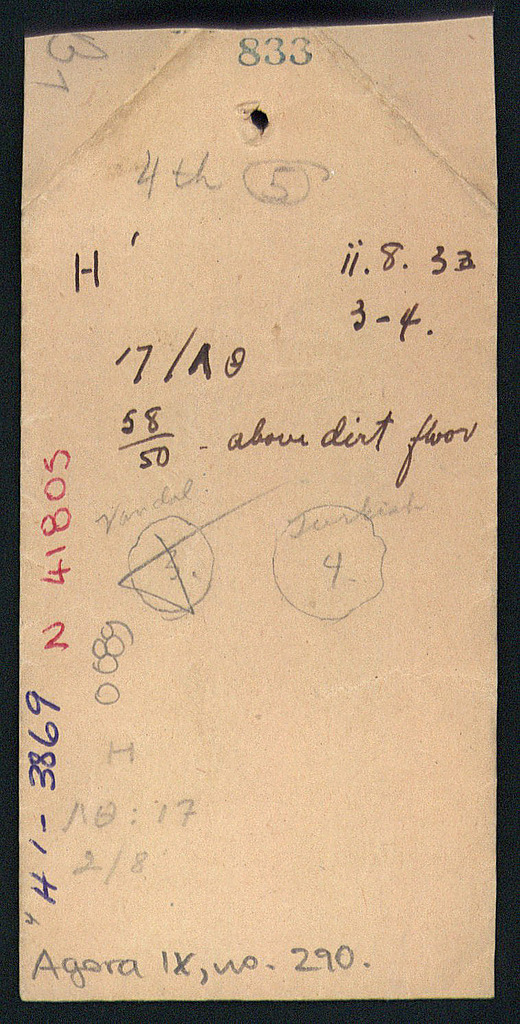 833
4th 5
H'
ii. 8. 33
3-4.
17/ΛΘ
58/50 - above dirt floor
Vandal
Turkish
3.
4.
N 41805
H'-3869
H
ΛΘ: 17
2/8
Agora IX, no. 290.